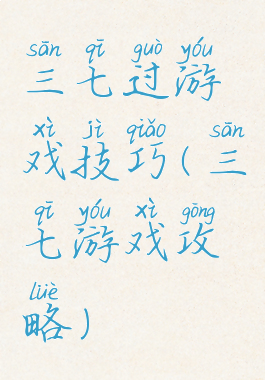 sān qī guò yóu
三七过游
xì jì qiǎo sān
戏技巧(三
qī yóu xì gōng
七游戏攻
lüè
略)